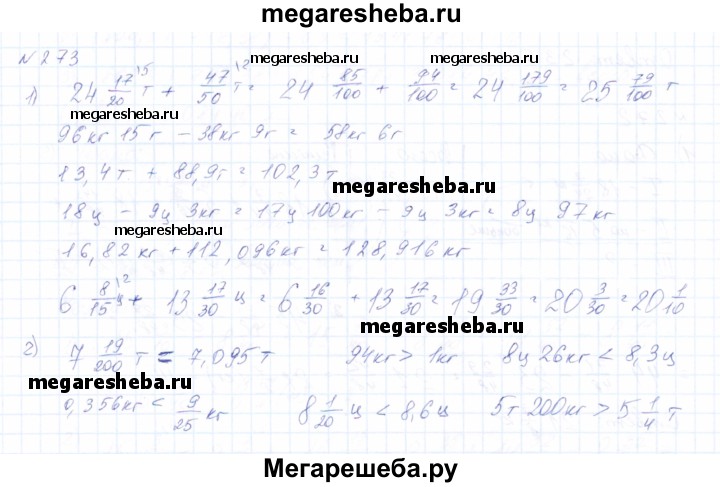 megaresheba.ru
№ 273
megaresheba.ru megaresheba.ru
1) 24 17/20 ^15 т + 47/50 ^12 т = 24 85/100 + 94/100 = 24 179/100 = 25 79/100 т
megaresheba.ru megaresheba.ru
96кг 15г - 38кг 9г = 58кг 6г
13,4т + 88,9т = 102,3т
megaresheba.ru
18ц - 9ц 3кг = 17ц 100кг - 9ц 3кг = 8ц 97кг
16,82кг + 112,096кг = 128,916кг
6 8/15 ^12 ц + 13 17/30 ц = 6 16/30 + 13 17/30 = 19 33/30 = 20 3/30 = 20 1/10
megaresheba.ru
2) 7 19/200 т = 7,095т 94кг > 1кг 8ц 26кг < 8,3ц
megaresheba.ru megaresheba.ru
0,356кг < 9/25 кг 8 1/20 ц < 8,6ц 5т 200кг > 5 1/4 т
Мегарешеба.ру